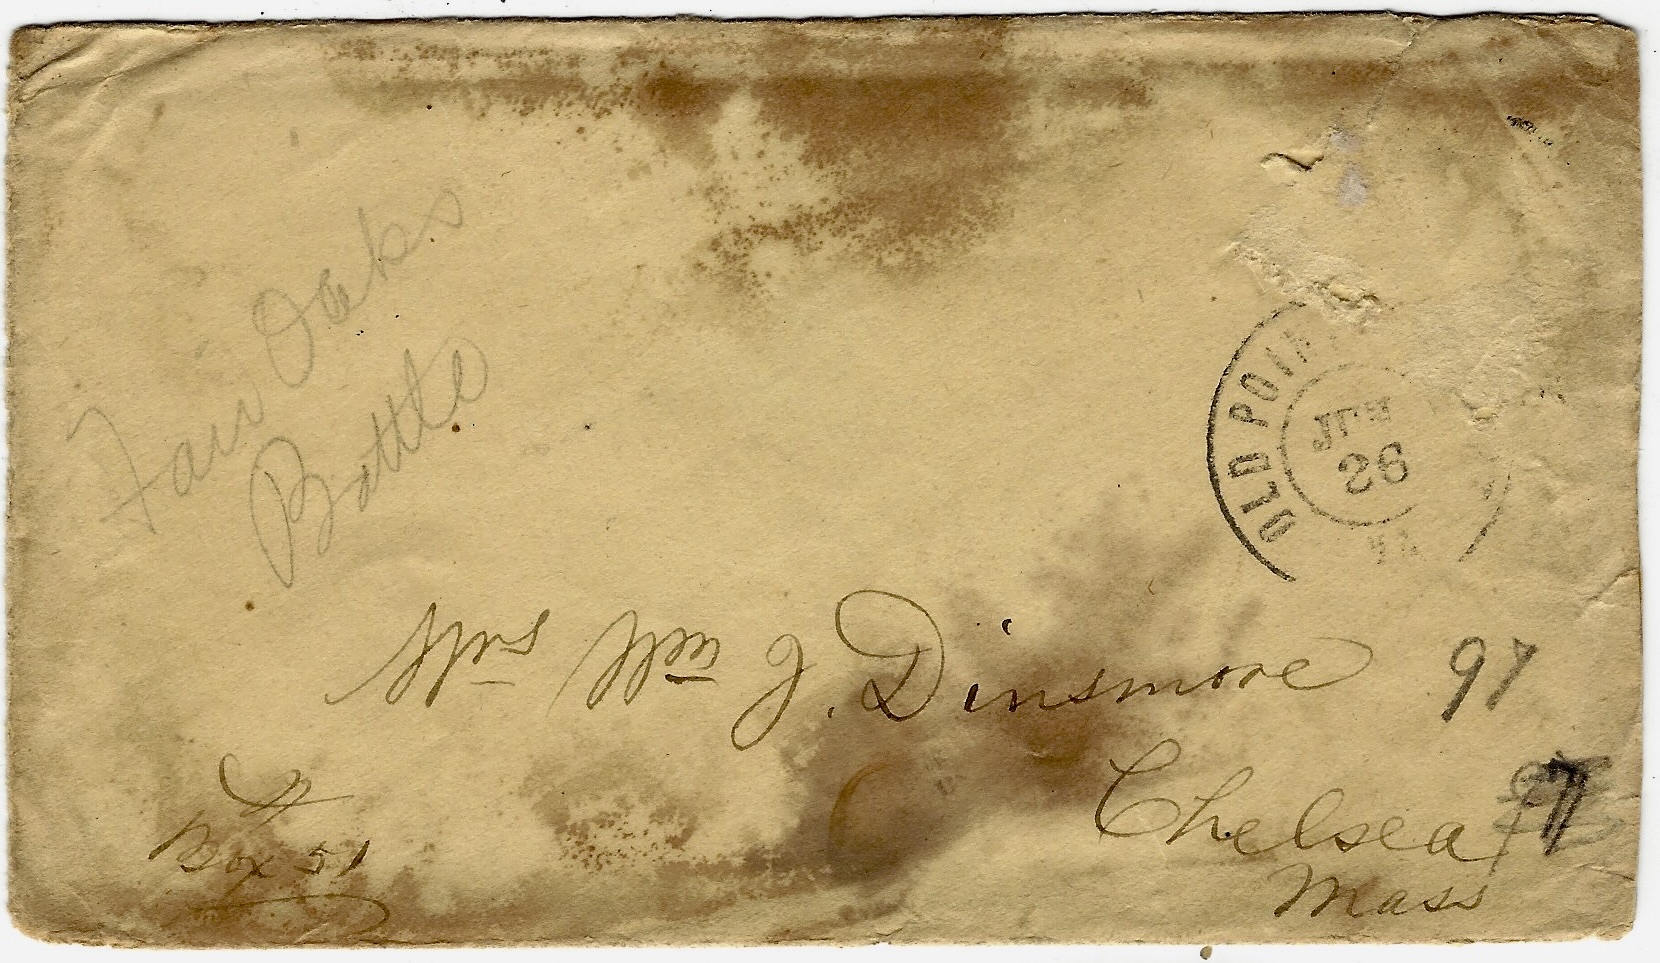 Fair Oaks
Battle
OLD POINT
JUN
26
VA
Mrs Wm J. Dinsmore
97
Chelsea
Mass
Box 51